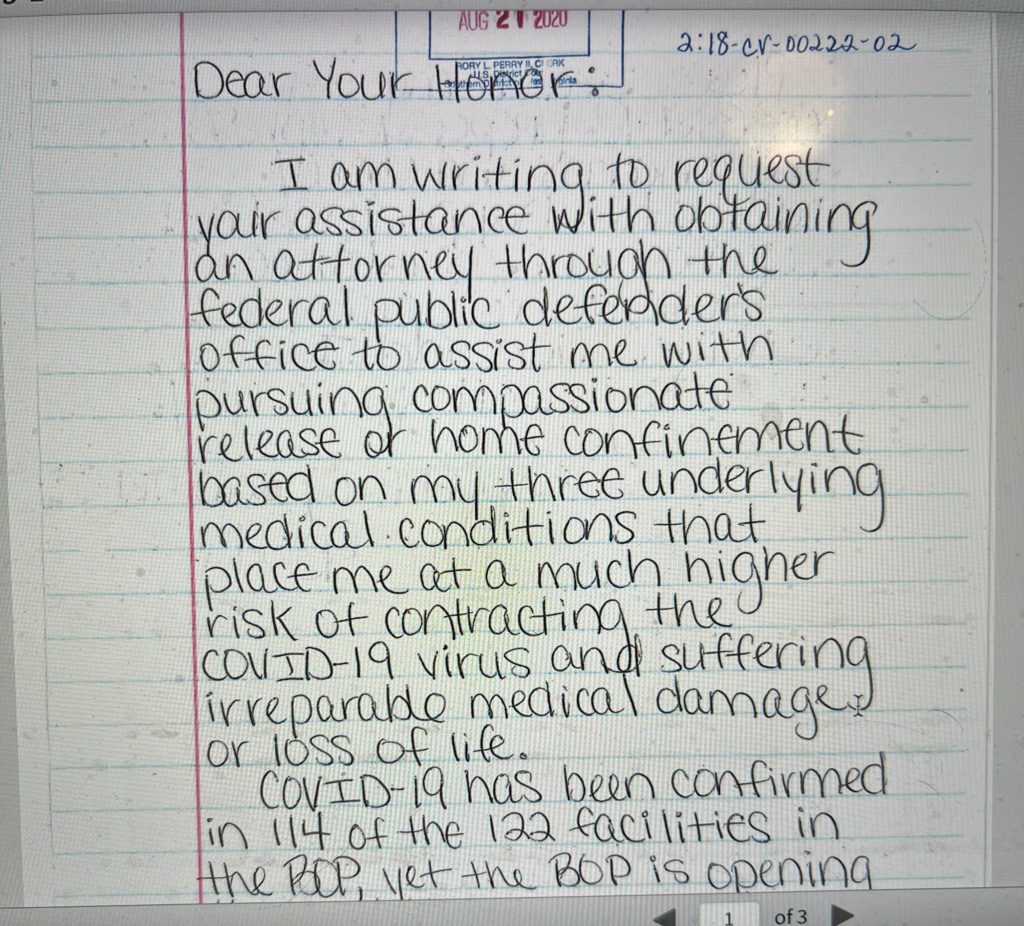 AUG 21 2020
2:18-cr-00222-02
RORY L. PERRY II, CLERK
U.S. District Court
Dear Your Honor:
I am writing to request
your assistance with obtaining
an attorney through the
federal public defendder's
office to assist me with
pursuing compassionate
release or home confinement
based on my three underlying
medical conditions that
place me at a much higher
risk of contracting the
COVID-19 virus and suffering
irreparable medical damage
or loss of life.
COVID-19 has been confirmed
in 114 of the 122 facilities in
the BOP, yet the BOP is opening
1 of 3